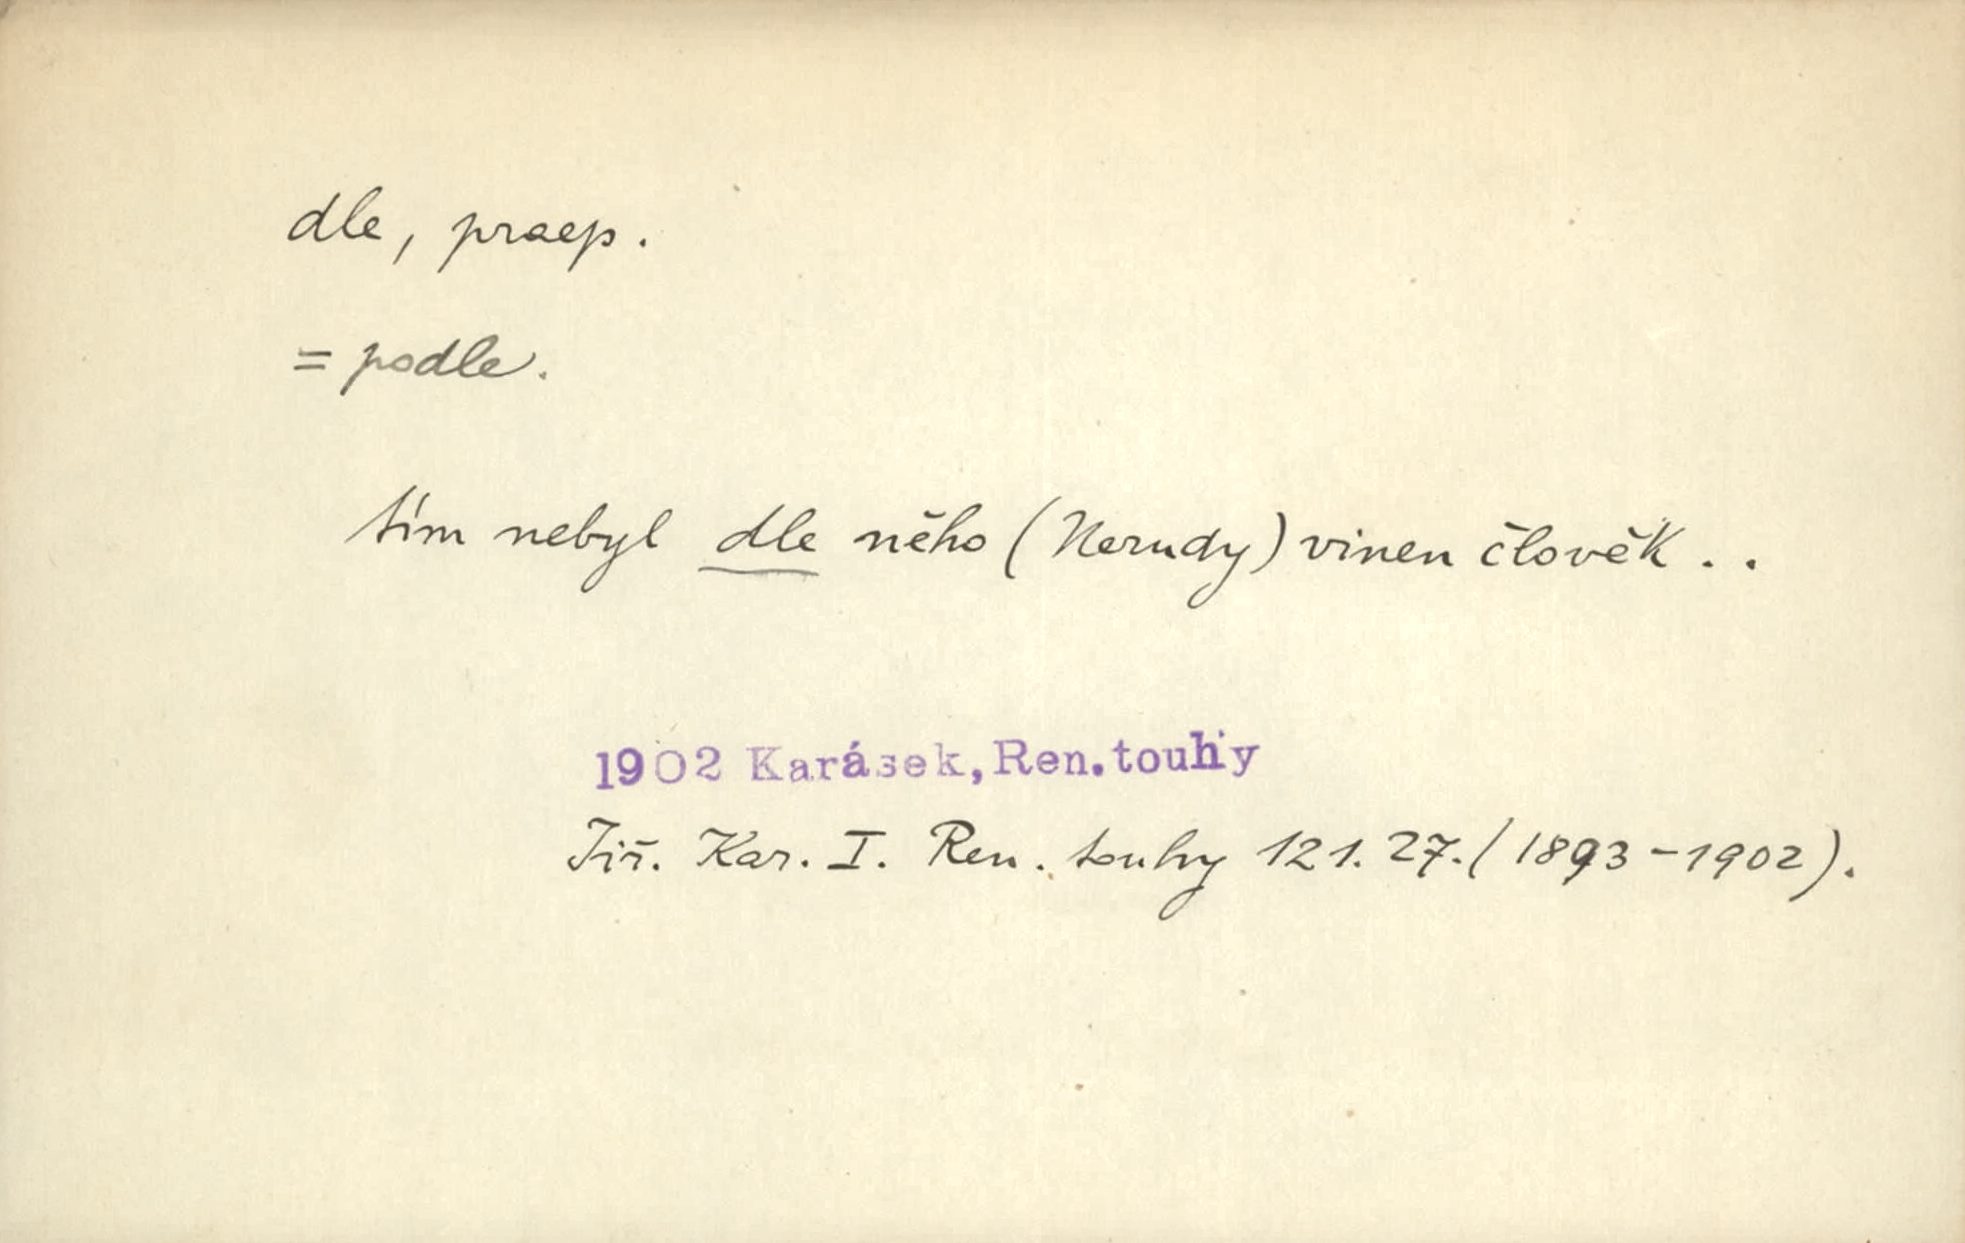 dle, praep.
= podle.
tím nebyl dle něho (Nerudy) vinen člověk . .
1902 Karásek, Ren. touhy
Jiř. Kar. I. Ren. touhy 121. 27. (1893-1902).